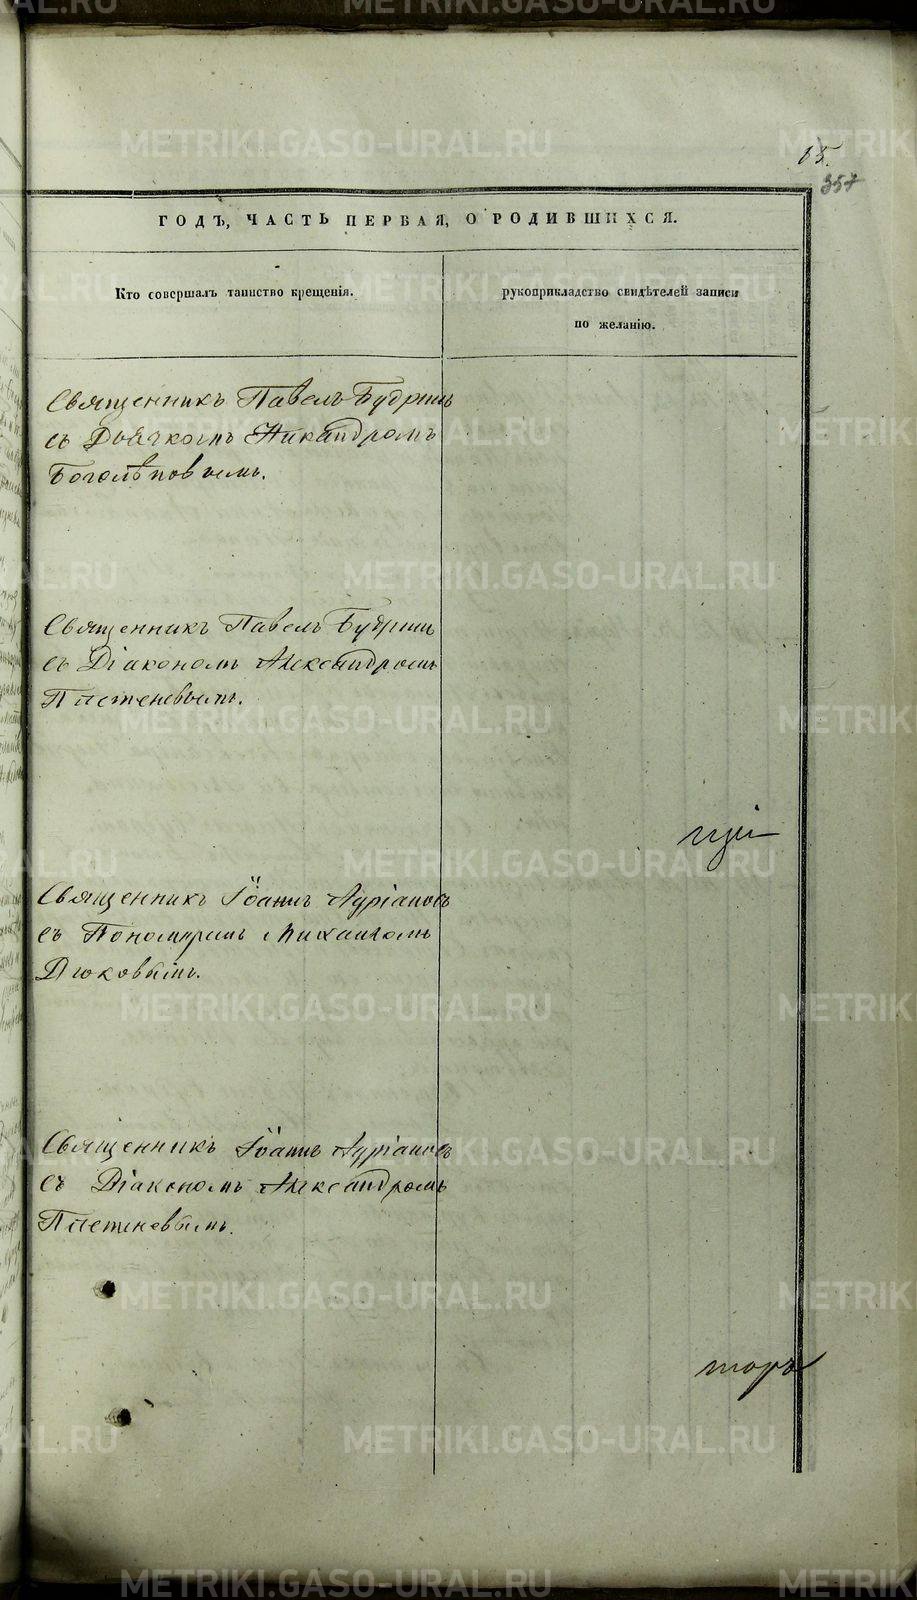 15.
357
ГОДЪ, ЧАСТЬ ПЕРВАЯ, О РОДИВШИХСЯ.
Кто совершалъ таинство крещенія.
рукоприкладство свидѣтелей записи
по желанію.
Священникъ Павелъ Будринъ
съ Дьячкомъ Никандромъ
Боголѣповымъ.
Священникъ Павелъ Будринъ
съ Діакономъ Александромъ
Плетеневымъ.
Священникъ Іоаннъ Адріановъ
съ Пономаремъ Михаиломъ
Дюковымъ.
Священникъ Іоаннъ Адріановъ
съ Діакономъ Александромъ
Плетеневымъ.
METRIKI.GASO-URAL.RU